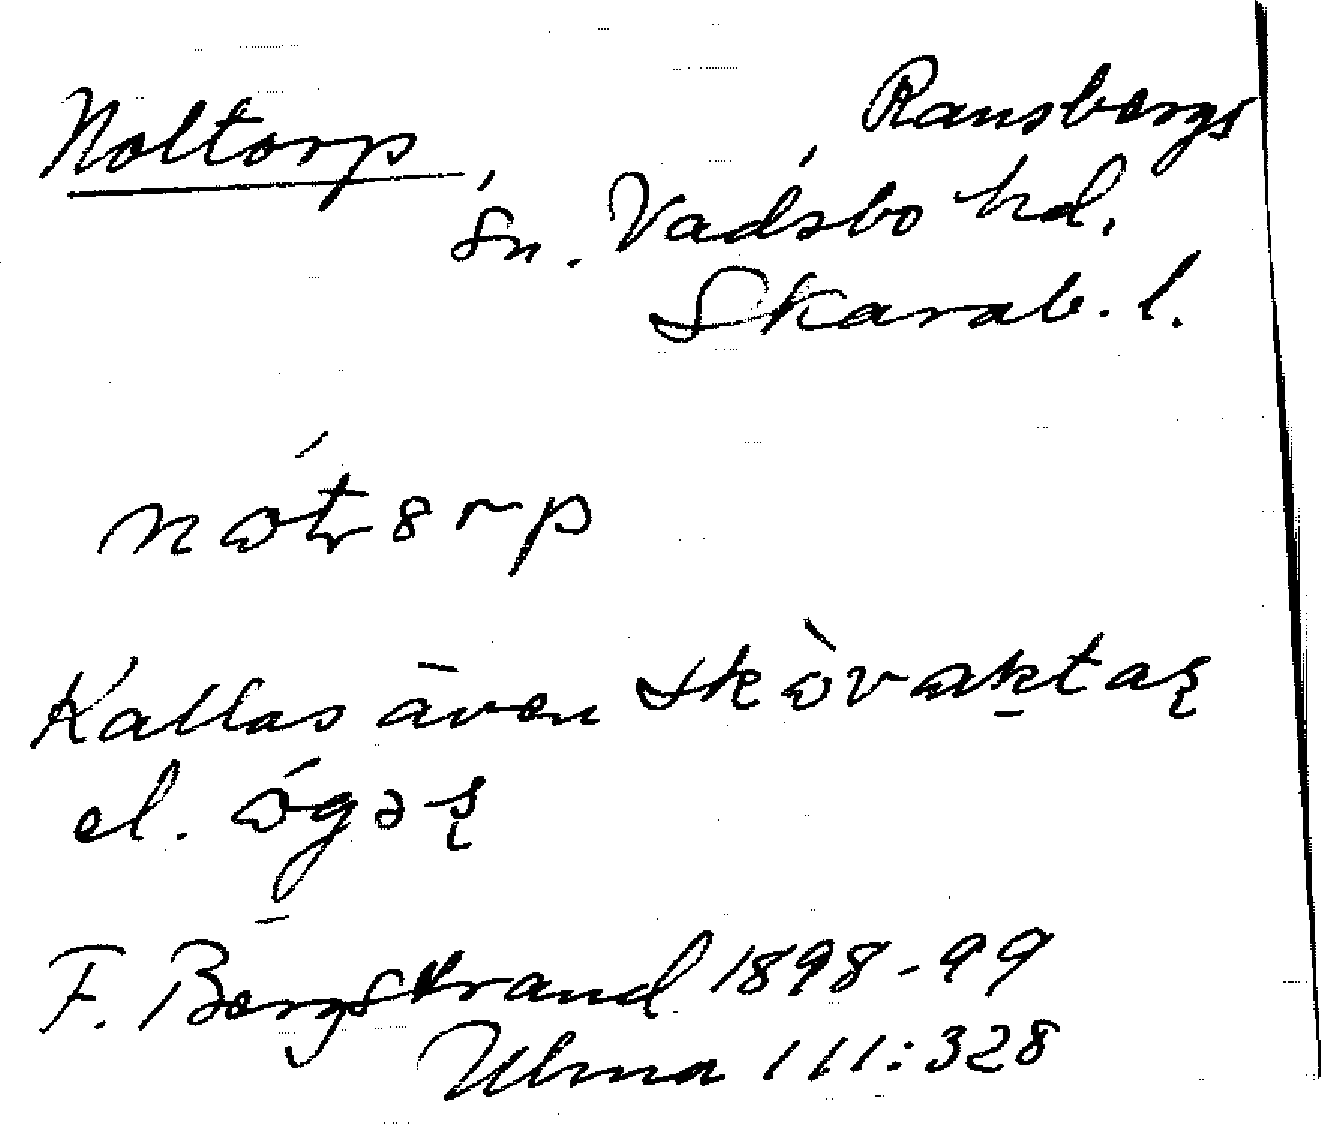 Noltorp, Ransbergs
sn. Vadsbo hd.
Skarab. l.
nɷ́tɞrp
Kallas även skɷ̀vɷktaʂ
el. ɷ́gəʂ
F. Bergstrand 1898-99
Ulma 111:328